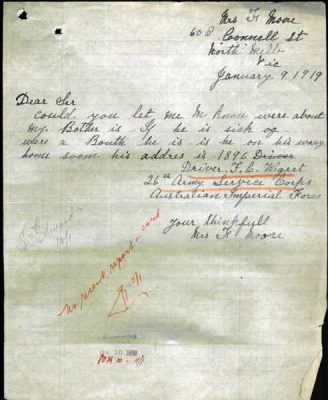 Mrs F Moore
60 O Connell St
North Melb
Vic
January 9. 1919
Dear Sir
could you let me M know were about
my Bother is If he is sick op
were a Bouth he is is he on his way
home soom his addres is 1896 Driver
Driver F. C. Wigert
26th Army Service Corps
Australian Imperial Force
your thinkfull
Mrs F Moore
no recent report on card
10/1